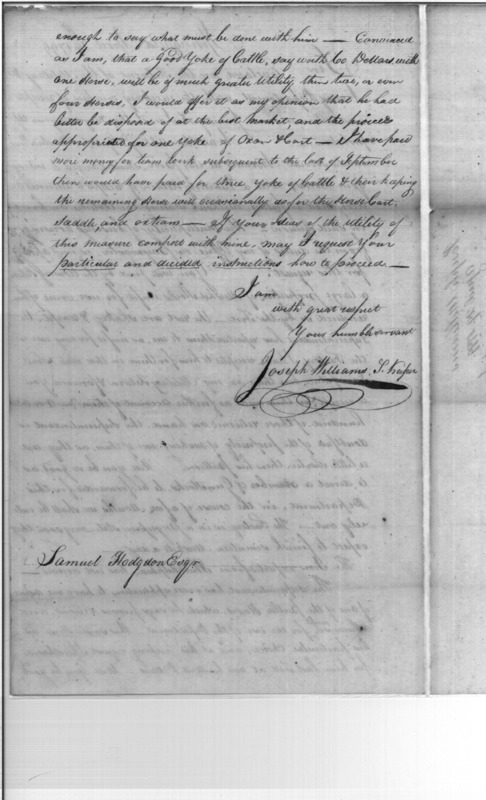 enough to say what must be done with him — Convinced
as I am, that a Good Yoke of Cattle, say worth 60 Dollars with
one Horse, will be of much greater Utility than two, or even
four Horses, I would offer it as my opinion that he had
better be disposed of at the best market, and the proceeds
appropriated for one Yoke of Oxen & Cart — I have paid
more money for team work subsequent to the last of September
then would have paid for three Yoke of Cattle & their keeping
the remaining Horse will occasionally do for the Horse Cart,
Saddle, and as team — If your Ideas of the utility of
this measure comport with mine, may I request Your
particular and decided instructions how to proceed —
I am
with great respect
Your humble servant
Joseph Williams, S. Keeper
Samuel Hodgdon Esqr